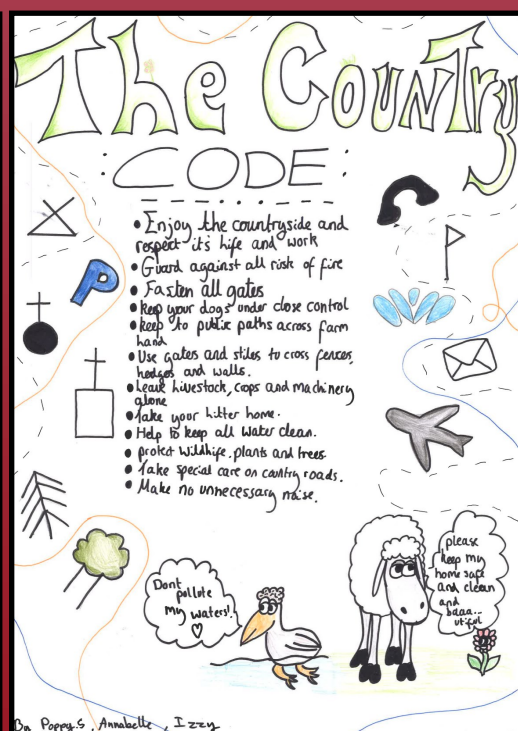 The Country
:CODE:
• Enjoy the countryside and
respect it's life and work
• Guard against all risk of fire
• Fasten all gates
• keep your dogs under close control
• keep to public paths across farm
land
• Use gates and stiles to cross fences,
hedges and walls.
• Leave Livestock, crops and machinery
alone
• Take your Litter home.
• Help to keep all water clean.
• protect wildlife, plants and trees
• Take special care on country roads.
• Make no unnecessary noise.
P
Dont
pollute
my waters!
please
keep my
home safe
and clean
and
baaa...
utiful
By Poppy.S, Annabelle, Izzy